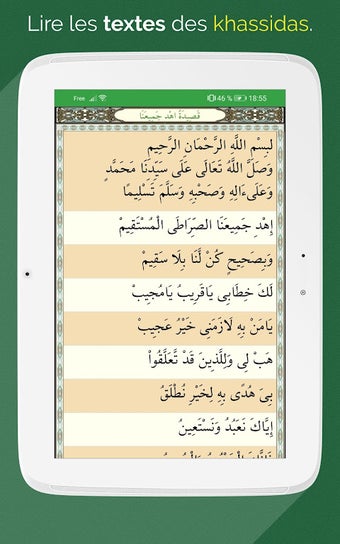 Lire les textes des khassidas.
Free 46 % 18:55
قَصِيدَةُ اهْدِ جَمِيعَنَا
لبِسْمِ اللَّهِ الرَّحْمَانِ الرَّحِيمِ
وَصَلَّ اللَّهُ تَعَالَى عَلَى سَيِّدِنَا مَحَمَّدٍ
وَعَلَىءَالِهِ وَصَحْبِهِ وَسَلَّمَ تَسْلِيمًا
إِهْدِ جَمِيعَنَا الصِّرَاطَى الْمُسْتَقِيمْ
وَبِصَحِيحٍ كُنْ لَّنَا بِلَا سَقِيمْ
لَكَ خِطَابِى يَاقَرِيبُ يَامُجِيبْ
يَامَنْ بِهِ لَازَمَنِى خَيْرُ عَجِيبْ
هَبْ لِى وَلِلَّذِينَ قَدْ تَعَلَّقُواْ
بِىَ هُدًى بِهِ لِخَيْرٍ نُطْلَقُ
إِيَّاكَ نَعْبُدُ وَنَسْتَعِينُ